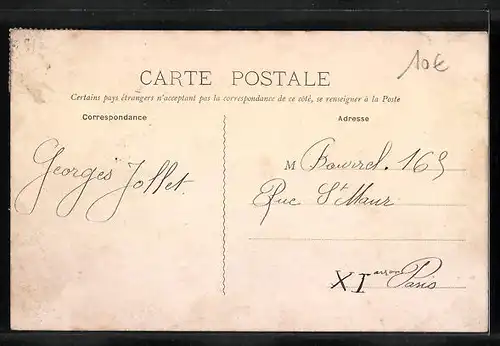 10€
CARTE POSTALE
Certains pays étrangers n'acceptant pas la correspondance de ce côté, se renseigner à la Poste
Correspondance
Georges Jollet.
Adresse
M Bourrel. 169
Rue St Maur
XI arron Paris